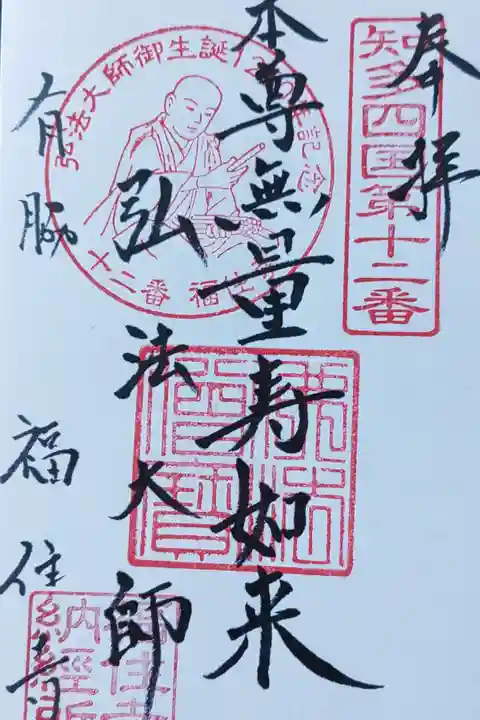 奉拝
知多四国第十二番
本尊無量寿如来
弘法大師
弘法大師御生誕1250年記念
十二番 福住寺
佛法僧寳
有脇 福住寺
福住寺
納経所